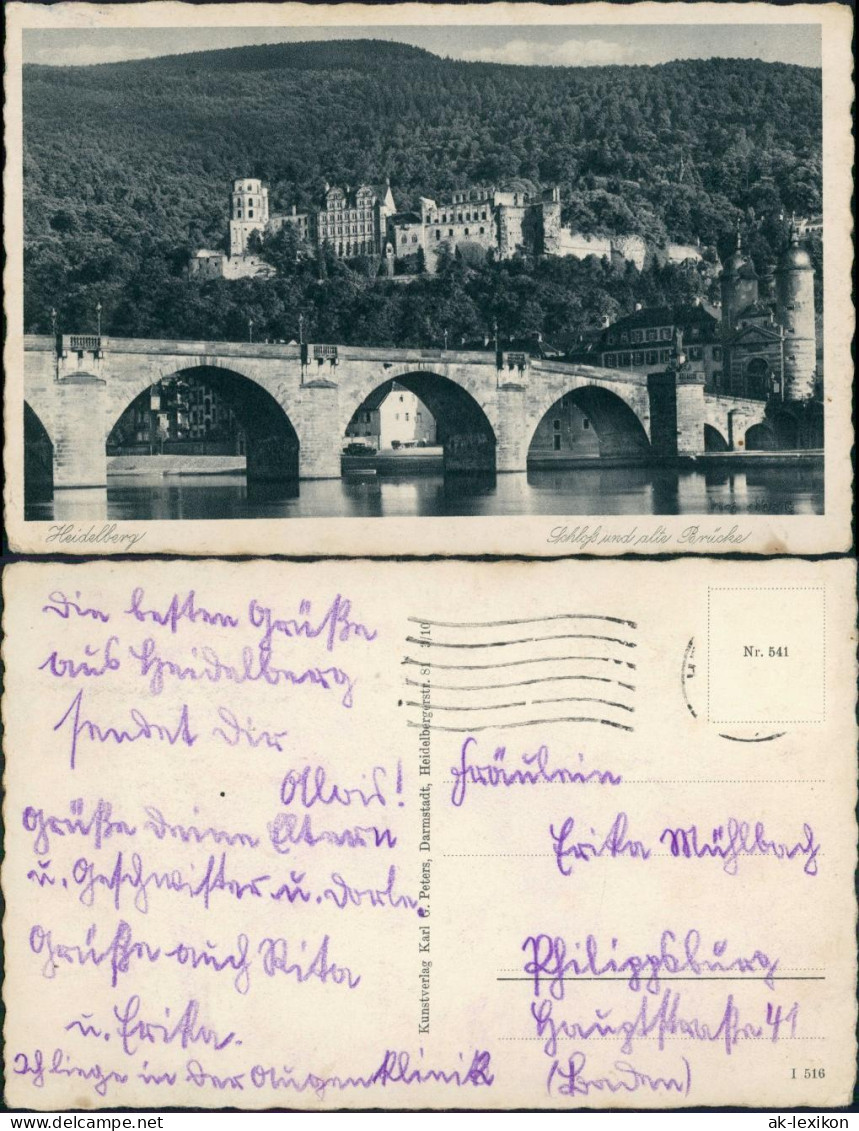 Heidelberg
Schloß und alte Brücke
Die besten Grüße
aus Heidelberg
sendet Dir
Alois!
Grüße deine Eltern
u. Geschwister u. Dorle.
Grüße auch Rita
u. Erika.
Ich liege in der Augenklinik
Kunstverlag Karl G. Peters, Darmstadt, Heidelbergerstr. 81 3/10
Nr. 541
Fräulein
Erika Mühlbach
Philippsburg
Hauptstraße 41
(Baden)
I 516
ak-lexikon